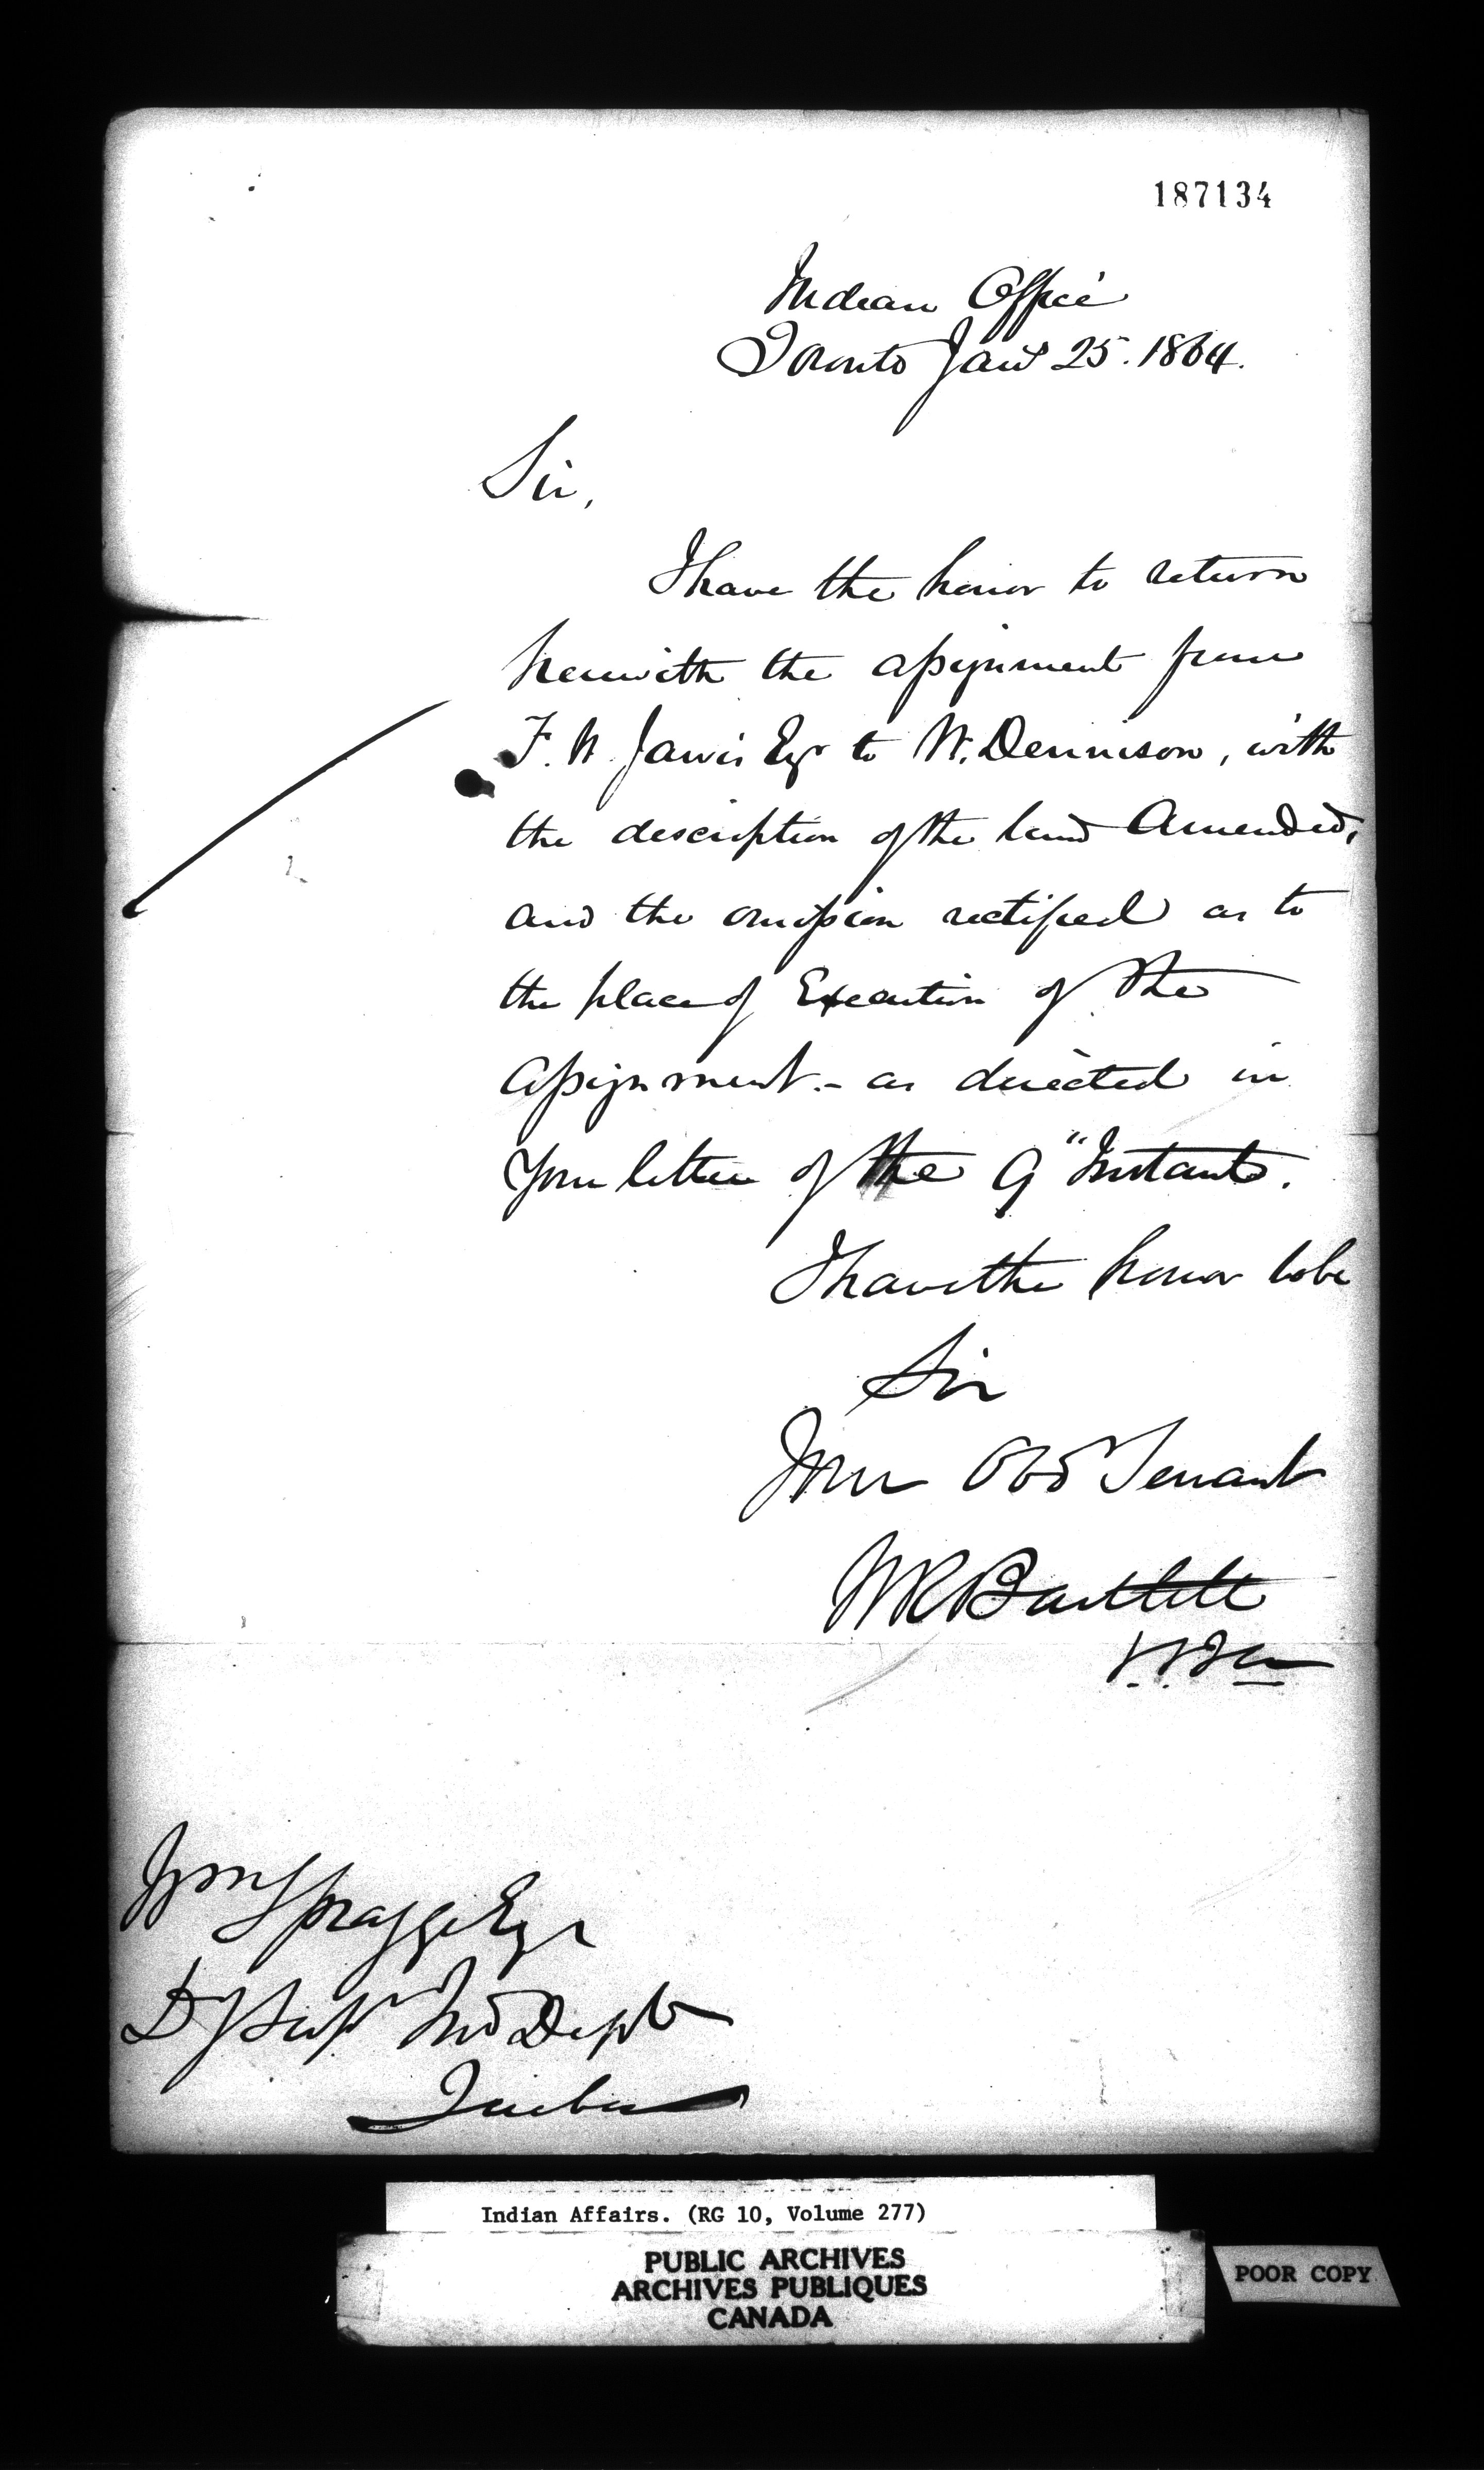 187134
Indian Office
Toronto Jany 25. 1864.
Sir,
I have the honor to return
herewith the assignment from
F. W. Jarvis Esqr to W. Dennison, with
the description of the land Amended,
and the omission rectified as to
the place of Execution of the
Assignment. - as directed in
Your letter of the 9" Instant.
I have the honor to be
Sir
Your Obt Servant
W R Bartlett
Wm Spragge Esqr
Dy Supt Ind Dept
Quebec
Indian Affairs. (RG 10, Volume 277)
PUBLIC ARCHIVES
ARCHIVES PUBLIQUES
CANADA
POOR COPY